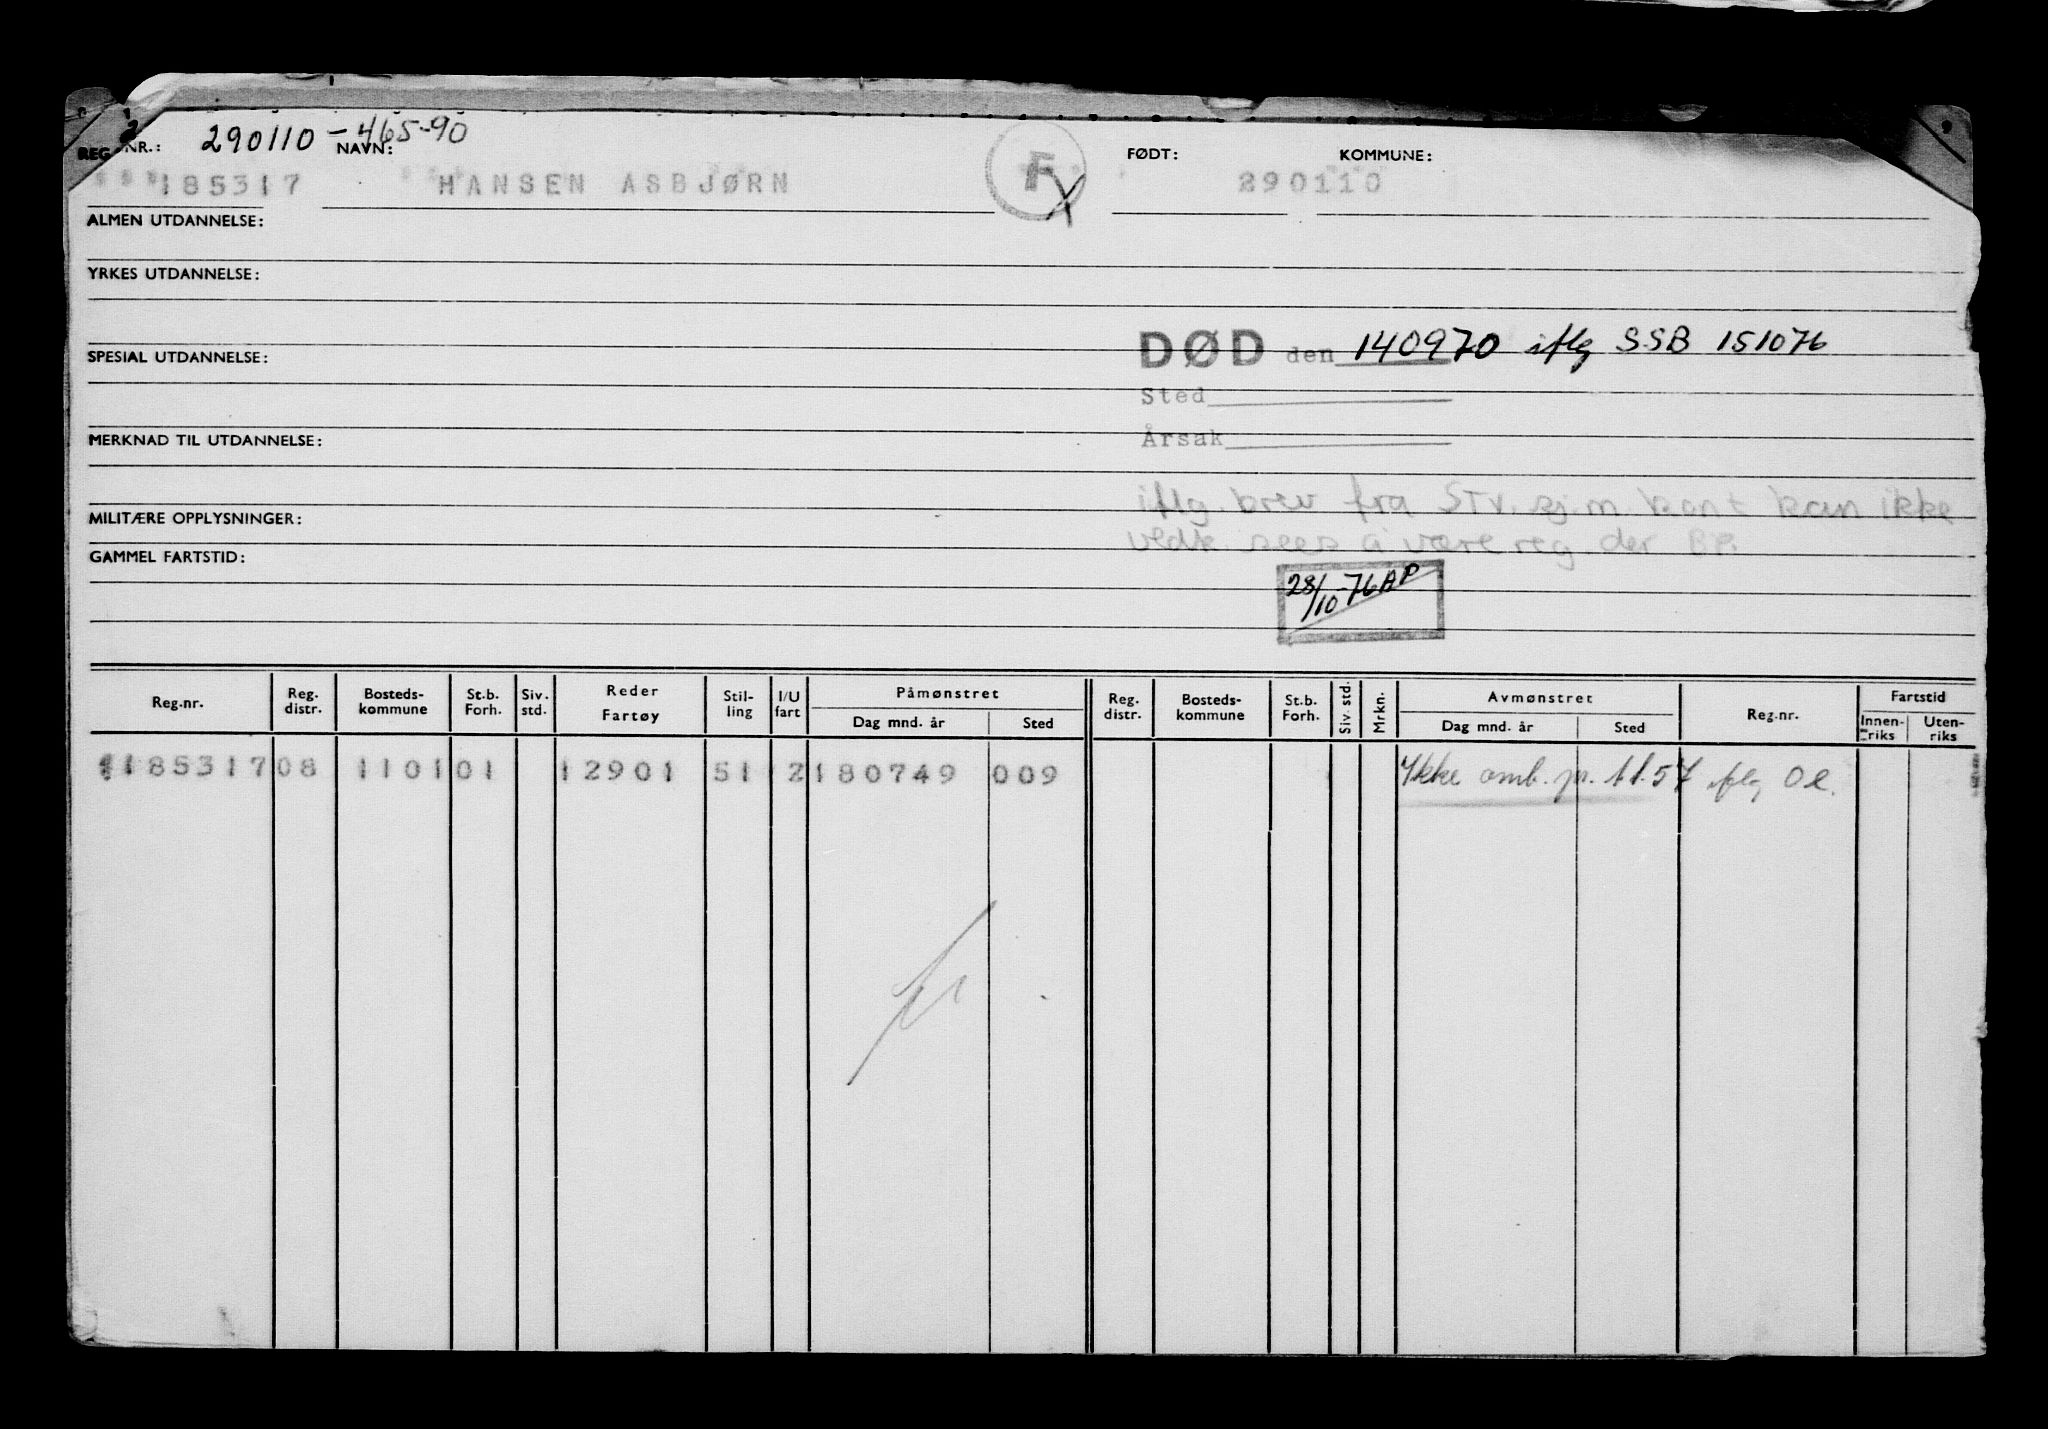 290110-465-90
REG.NR.: NAVN: FØDT: KOMMUNE:
185317 HANSEN ASBJØRN F X 290110
ALMEN UTDANNELSE:
YRKES UTDANNELSE:
DØD den 140970 iflg SSB 151076
SPESIAL UTDANNELSE:
Sted
MERKNAD TIL UTDANNELSE: Årsak
iflg. brev fra STV. sj.m. kont kan ikke
MILITÆRE OPPLYSNINGER:
vedk. sees å være reg. der
GAMMEL FARTSTID:
28/10-76 AP
Reg.nr. Reg. distr. Bosteds-kommune St.b. Forh. Siv. std. Reder Fartøy Stil-ling I/U fart Påmønstret Dag mnd. år Sted Reg. distr. Bosteds-kommune St.b. Forh. Siv. std. Mrkn. Avmønstret Dag mnd. år Sted Reg.nr. Fartstid Innen-riks Uten-riks
185317 08 1101 01 12901 51 2 180749 009 Ikke omb. pr. 1.1.57 iflg Ol.